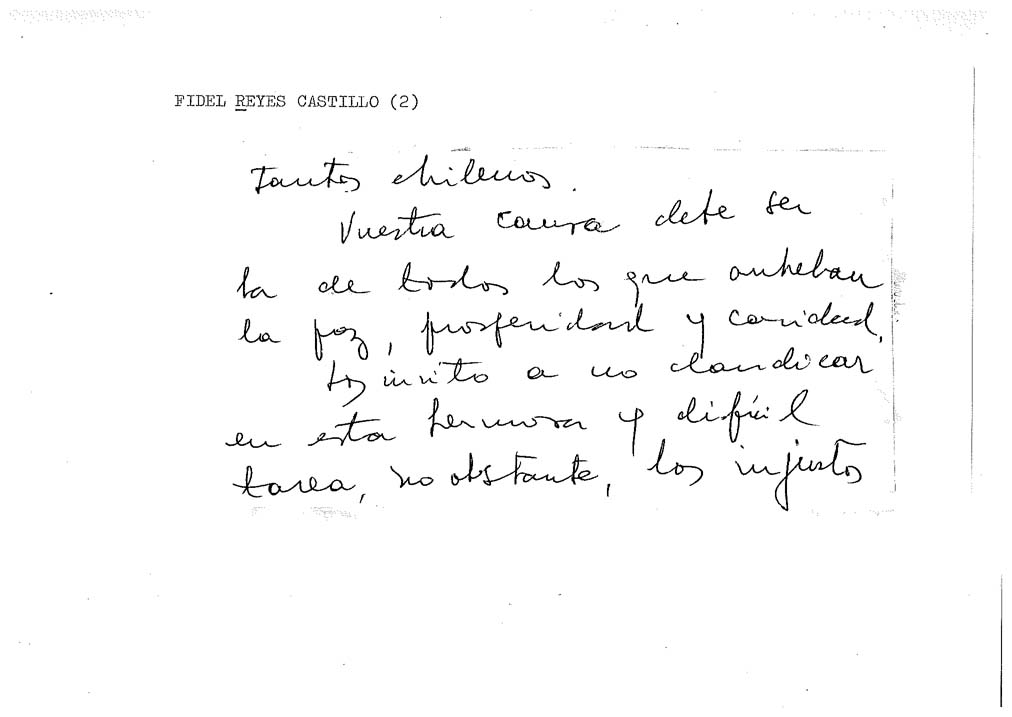 FIDEL REYES CASTILLO (2)
tantos chilenos.
Vuestra causa debe ser
la de todos los que anhelan
la paz, prosperidad y caridad.
Los invito a no claudicar
en esta hermosa y difícil
tarea, no obstante, los injustos